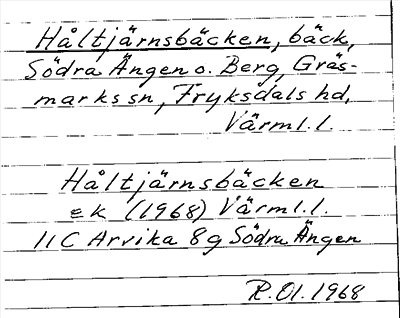 Håltjärnsbäcken, bäck,
Södra Ängen o. Berg, Gräs-
marks sn, Fryksdals hd,
Värml. l.
Håltjärnsbäcken
ek (1968) Värml. l.
11C Arvika 8g Södra Ängen
R. Ol. 1968